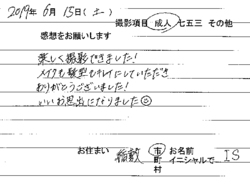 2019年 6月 15日(土)
撮影項目 成人 七五三 その他
感想をお願いします
楽しく撮影できました!
メイクも髪型もキレイにしていただき
ありがとうございました!
いい思い出になりました☺
お住まい 稲敷 市町村 お名前イニシャルで IS